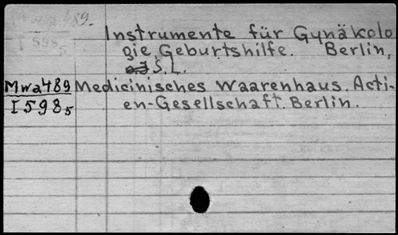 Mwa 489.
I 598 5
Instrumente für Gynäkolo
gie, Geburtshilfe. Berlin,
s.l.
Mwa 489 Medicinisches Waarenhaus. Acti-
I 598 5 en-Gesellschaft. Berlin.